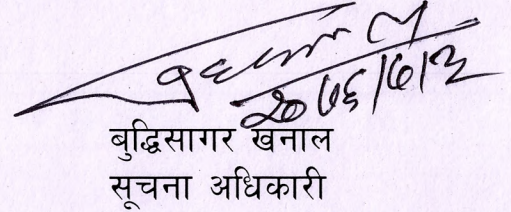 २०७६/७/३
बुद्धिसागर खनाल
सूचना अधिकारी